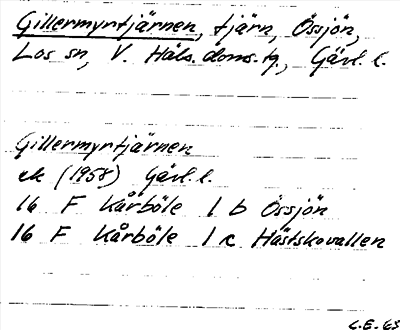 Gillermyrtjärnen, tjärn, Össjön,
Los sn, V. Häls. doms.tg., Gävl. l.
Gillermyrtjärnen
ek (1958) Gävl. l.
16 F Kårböle 1 b Össjön
16 F Kårböle 1 c Hästskovallen
C.E. 63